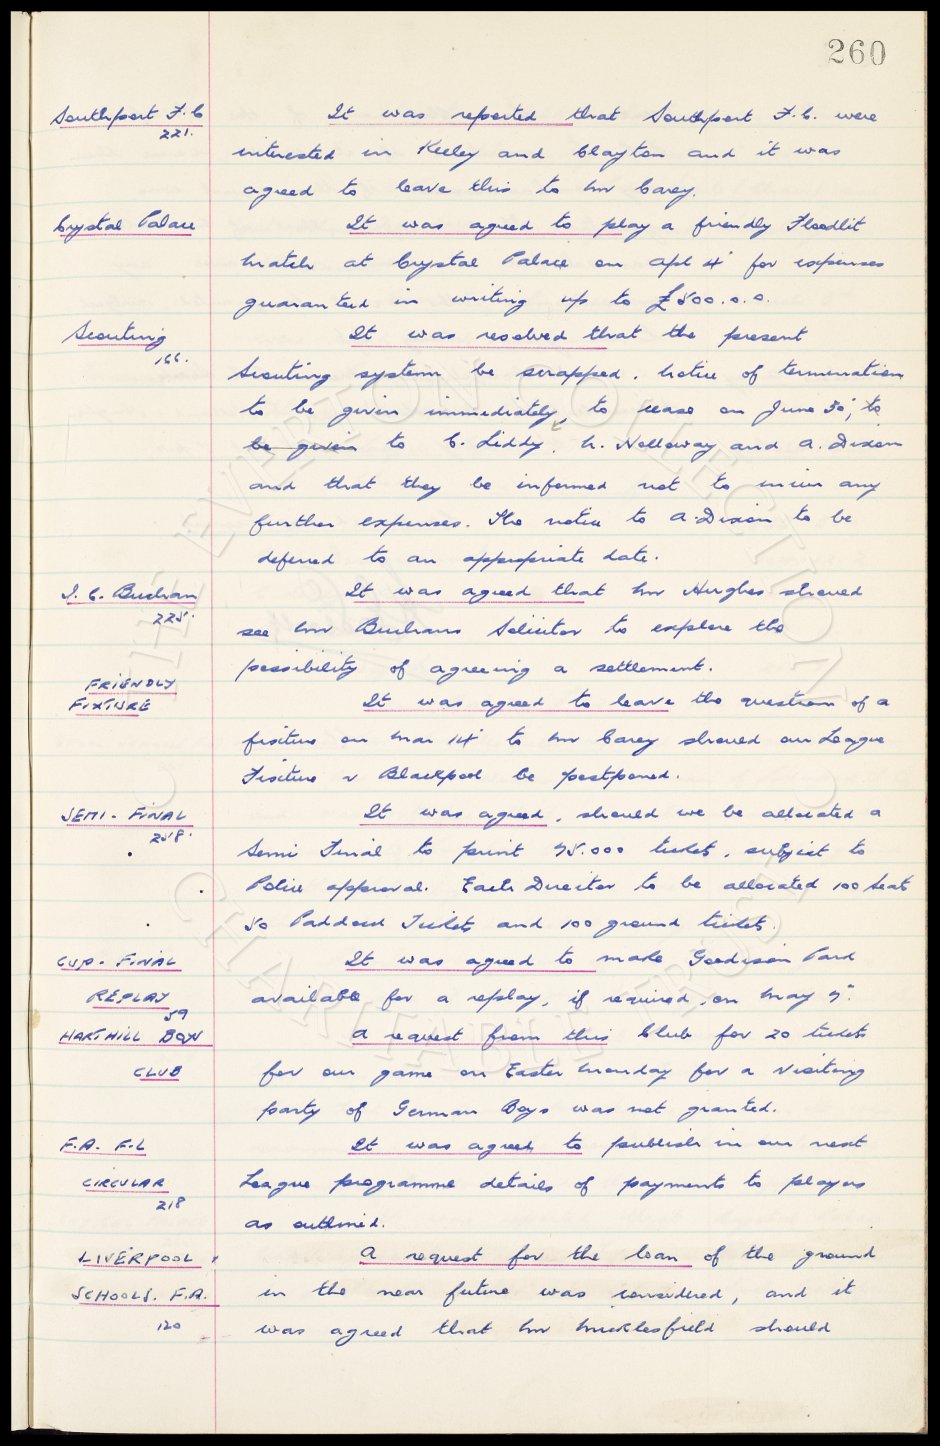 260
Southport F.C It was reported that Southport F.C. were
221.
interested in Keeley and Clayton and it was
agreed to leave this to Mr Carey.
Crystal Palace It was agreed to play a friendly Floodlit
Match at Crystal Palace on Apl 4' for expenses
guaranteed in writing up to £500.0.0.
Scouting It was resolved that the present
166.
Scouting system be scrapped. Notice of termination
to be given immediately, to cease on June 30', to
be given to C. Liddy, H. Holloway and A. Dixon
and that they be informed not to incur any
further expenses. The notice to A. Dixon to be
deferred to an appropriate date.
I. C. Buchan It was agreed that Mr Hughes should
225.
see Mr Buchans Solicitor to explore the
possibility of agreeing a settlement.
FRIENDLY
FIXTURE It was agreed to leave the question of a
fixture on Mar 14' to Mr Carey should our League
Fixture v Blackpool be postponed.
SEMI-FINAL It was agreed, should we be allocated a
258.
Semi Final to print 75.000 tickets, subject to
Police approval. Each Director to be allocated 100 Seats
50 Paddock Tickets and 100 ground tickets.
CUP-FINAL It was agreed to make Goodison Park
REPLAY available for a replay, if required, on May 7'.
59
HARTHILL BOYS A request from this Club for 20 tickets
CLUB for our game on Easter Monday for a visiting
party of German Boys was not granted.
F.A. F.L It was agreed to publish in our next
CIRCULAR League programme details of payments to players
218
as outlined.
LIVERPOOL A request for the loan of the ground
SCHOOLS. F.A. in the near future was considered, and it
120 was agreed that Mr Micklesfield should
© THE EVERTON COLLECTION CHARITABLE TRUST